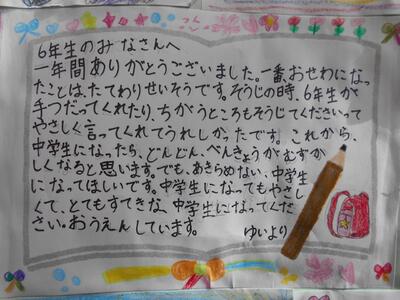 6年生のみなさんへ
一年間ありがとうございました。一番、おせわになっ
たことは、たてわりせいそうです。そうじの時、6年生が
手つだってくれたり、ちがうところもそうじてくださいって
やさしく言ってくれてうれしかったです。これから、
中学生になったら、どんどん、べんきょうがむずか
しくなると思います。でも、あきらめない、中学生
になってほしいです。中学生になってもやさし
くて、とてもすてきな、中学生になってくだ
さい。おうえんしています。
ゆいより